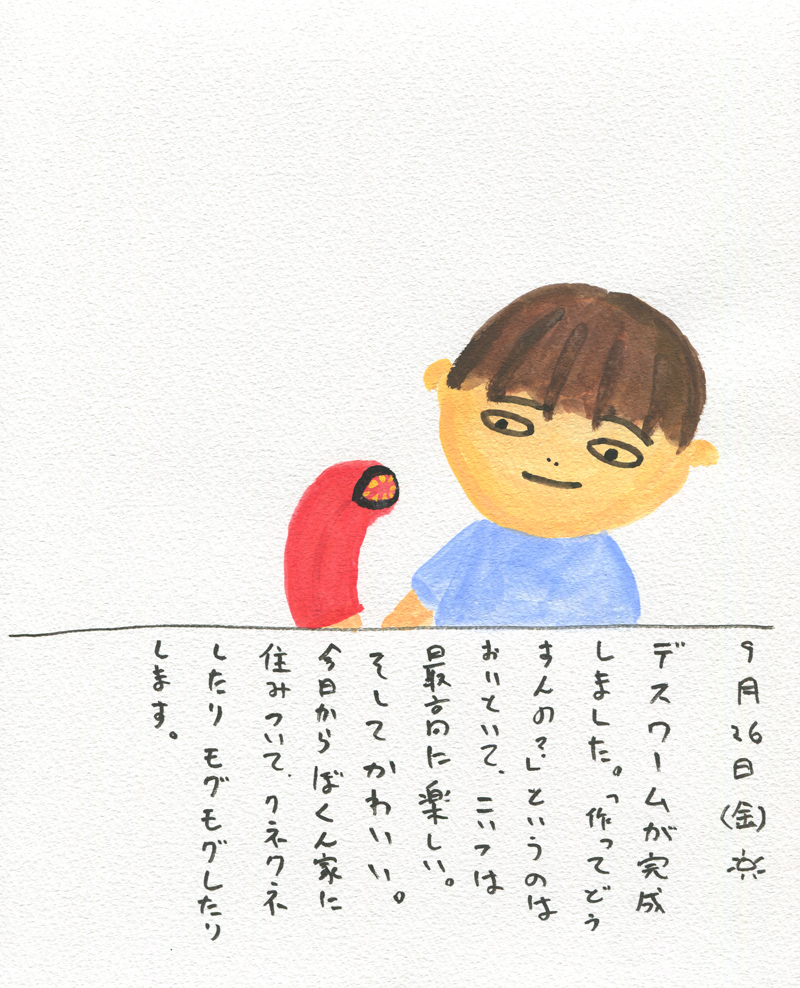 9月26日(金)☼
デスワームが完成
しました。「作ってどう
すんの?」というのは
おいといて、こいつは
最高に楽しい。
そしてかわいい。
今日からぼくん家に
住みついて、クネクネ
したりモグモグしたり
します。